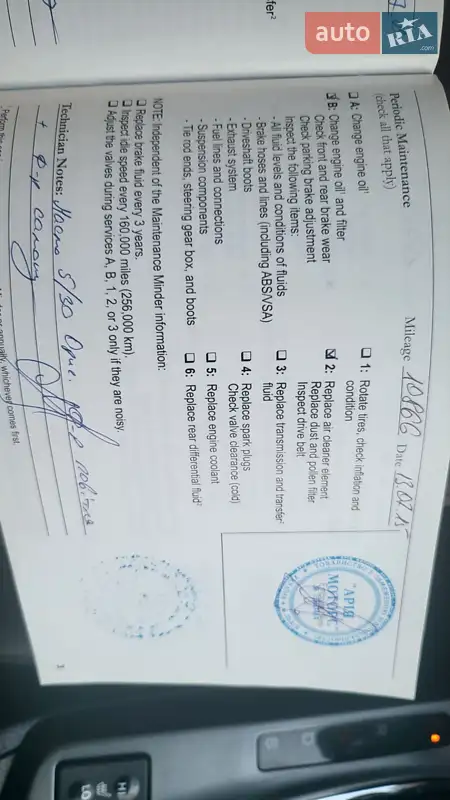 auto RIA .com
fer²
Periodic Maintenance
(check all that apply)
Mileage 108866 Date 13.02.15
❑ A: Change engine oil¹
☑ B: Change engine oil¹ and filter
Check front and rear brake wear
Check parking brake adjustment
Inspect the following items:
- All fluid levels and conditions of fluids
- Brake hoses and lines (including ABS/VSA)
- Driveshaft boots
- Exhaust system
- Fuel lines and connections
- Suspension components
- Tie rod ends, steering gear box, and boots
❑ 1: Rotate tires, check inflation and
condition
☑ 2: Replace air cleaner element
Replace dust and pollen filter
Inspect drive belt
❑ 3: Replace transmission and transfer²
fluid
❑ 4: Replace spark plugs
Check valve clearance (cold)
❑ 5: Replace engine coolant
❑ 6: Replace rear differential fluid²
NOTE: Independent of the Maintenance Minder information:
❑ Replace brake fluid every 3 years.
❑ Inspect idle speed every 160,000 miles (256,000 km).
❑ Adjust the valves during services A, B, 1, 2, or 3 only if they are noisy.
Technician Notes: Масло 5/30
+ ф-р салону
АРІЯ
МОТОРС
whichever comes first.
HI
LO